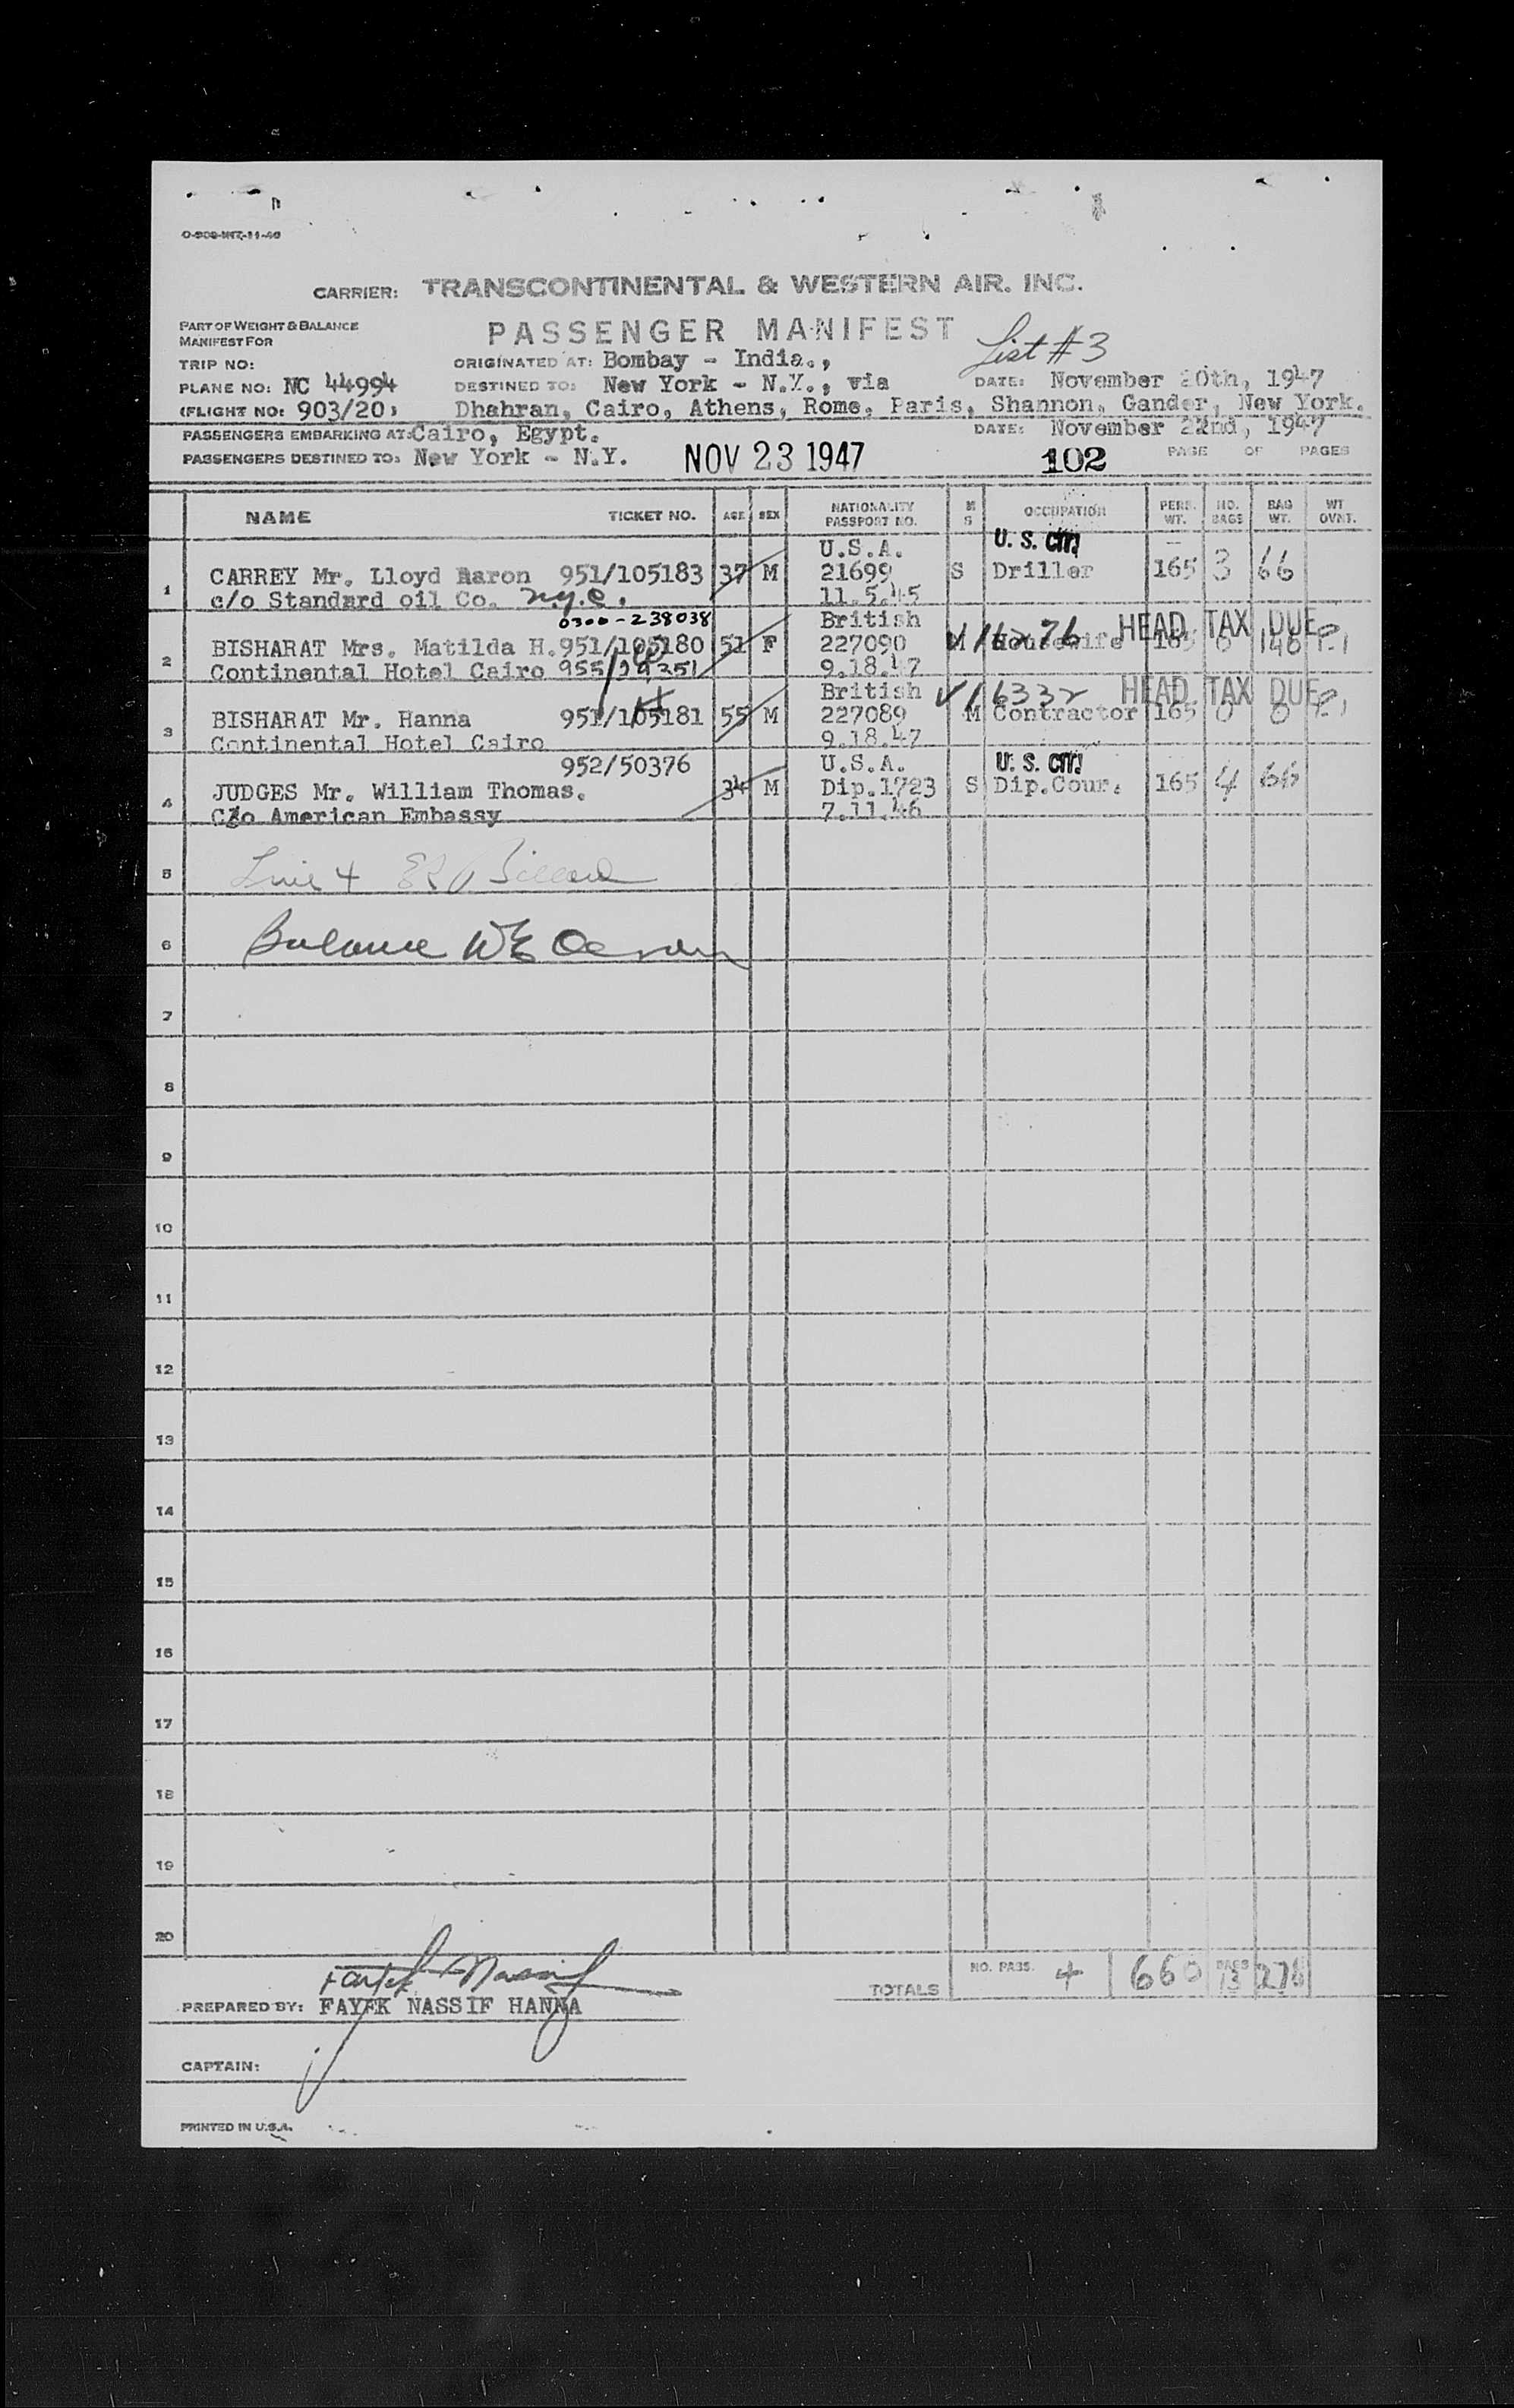 CARRIER: TRANSCONTINENTAL & WESTERN AIR. INC.
PART OF WEIGHT & BALANCE
MANIFEST FOR
PASSENGER MANIFEST
List #3
TRIP NO:
ORIGINATED AT: Bombay - India.,
PLANE NO: NC 44994
DESTINED TO: New York - N.Y., via
DATE: November 20th, 1947
(FLIGHT NO: 903/20)
Dhahran, Cairo, Athens, Rome, Paris, Shannon, Gander, New York.
PASSENGERS EMBARKING AT: Cairo, Egypt.
DATE: November 22nd, 1947
PASSENGERS DESTINED TO: New York - N.Y.
NOV 23 1947
102
PAGE OF PAGES
NAME TICKET NO. AGE SEX NATIONALITY PASSPORT NO. M S OCCUPATION PERS. WT. NO. BAGS BAG WT. WT OVNT.
U.S.A. U. S. CIT.
1 CARREY Mr. Lloyd Aaron 951/105183 37 M 21699 S Driller 165 3 66
c/o Standard oil Co. N.Y.C. 11.5.45
0300-238038 British HEAD TAX DUE
2 BISHARAT Mrs. Matilda H. 951/105180 51 F 227090 M Housewife 165 6 146
Continental Hotel Cairo 9.18.47
British 6332 HEAD TAX DUE
3 BISHARAT Mr. Hanna 951/105181 55 M 227089 M Contractor 165 0 0
Continental Hotel Cairo 9.18.47
952/50376 U.S.A. U. S. CIT.
4 JUDGES Mr. William Thomas. 34 M Dip.1723 S Dip.Cour. 165 4 66
C/o American Embassy 7.11.46
5 Line 4
6 Balance
7
8
9
10
11
12
13
14
15
16
17
18
19
20
TOTALS NO. PASS. 4 660 BAGS 13 278
PREPARED BY: FAYEK NASSIF HANNA
CAPTAIN:
PRINTED IN U.S.A.